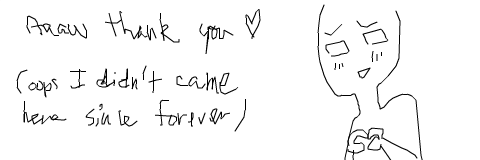 Aaaw thank you ♡
(oops I didn't came
here since forever)